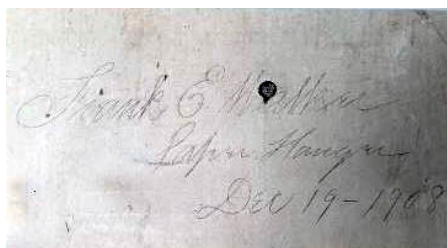 Frank E Walker
Paper Hanger
Dec 19-1908